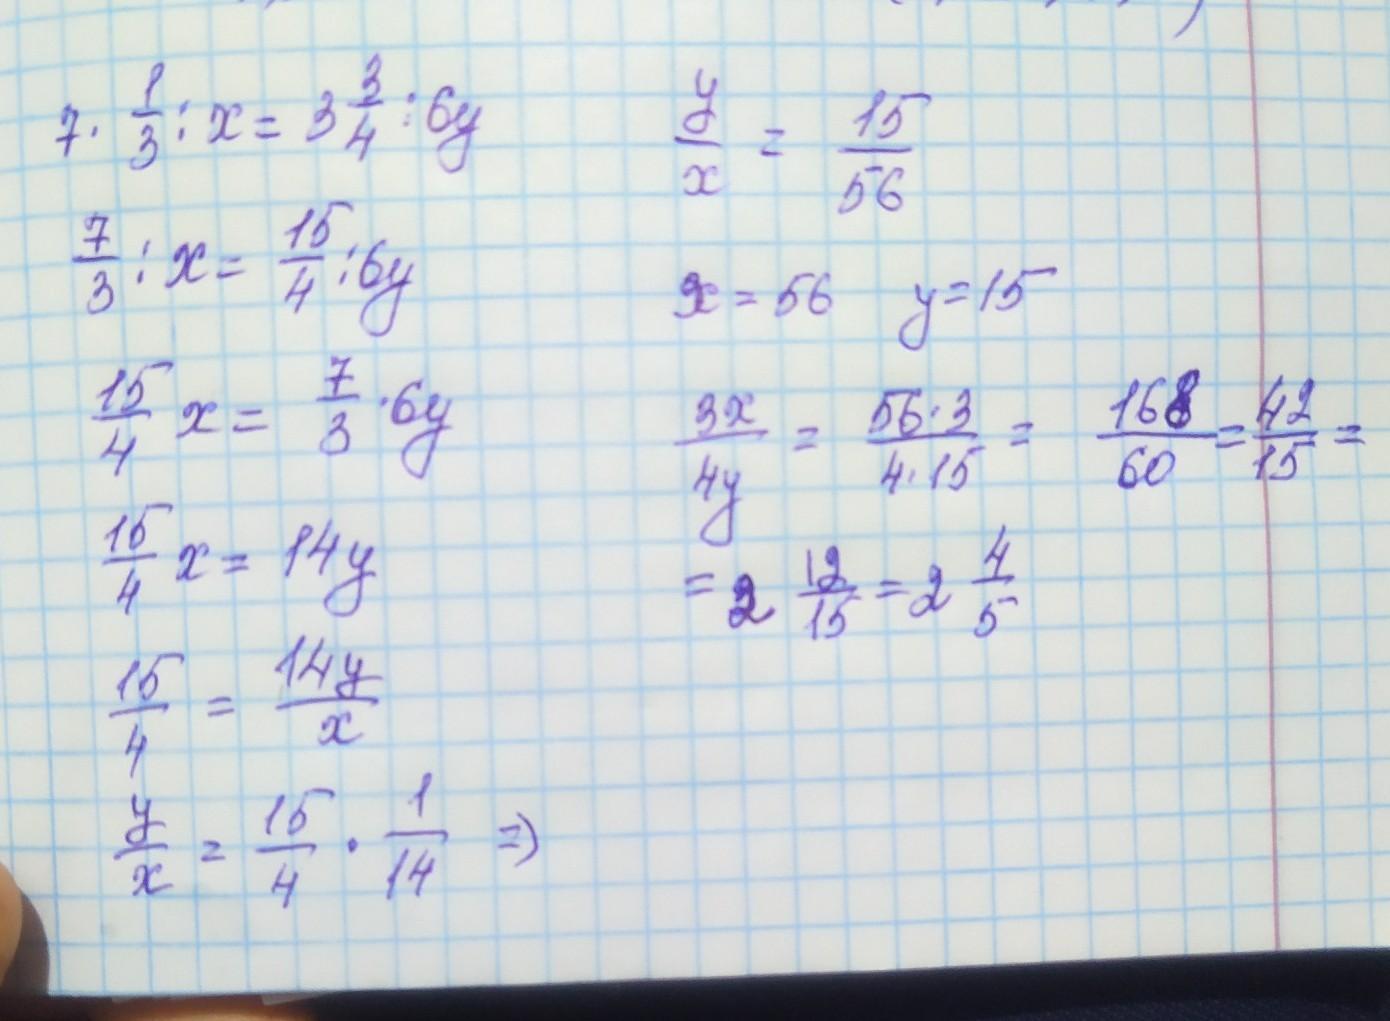 7. 1/3 : x = 3 3/4 : 6y
7/3 : x = 15/4 : 6y
15/4 x = 7/3 · 6y
15/4 x = 14y
15/4 = 14y/x
y/x = 15/4 · 1/14 =>
y/x = 15/56
x = 56 y = 15
3x/4y = 56·3/4·15 = 168/60 = 42/15 =
= 2 12/15 = 2 4/5